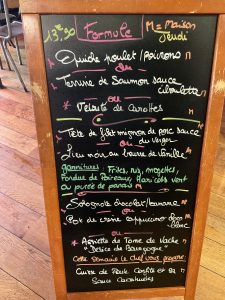 13€90 Formule M = Maison
Jeudi
Quiche poulet / poivrons M
ou
Terrine de Saumon sauce
ciboulette
ou
Velouté de Carottes M
Tête de filet mignon de porc sauce
ou du verger M
Lieu noir au beurre de Vanille M
garnitures Frites, riz, mogettes,
Fondue de Poireaux, Haricots vert
ou purée de panais M
chocolat / banane M
ou
Pot de crème cappuccino choco
blanc
ou
Assiette de Tome de Vache
"Délice de Bourgogne"
Cette Semaine le chef vous propose
Cuisse de Confite et sa
Sauce